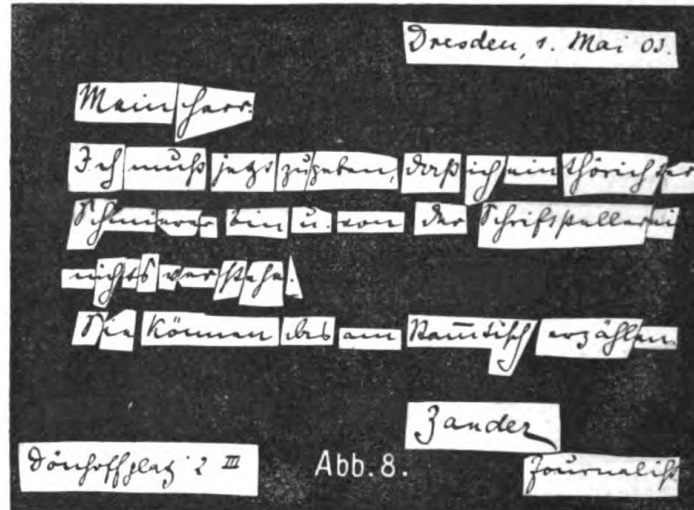 Dresden, 1. Mai 03.
Mein Herr.
Ich muß jetzt zugeben, daß ich ein thörichter
Schmierer bin u. von der Schriftstellerei
nichts verstehe.
Sie können das am Stam̅tisch erzählen
Zander
Journalist
Dönhoffplatz 2 III
Abb. 8.